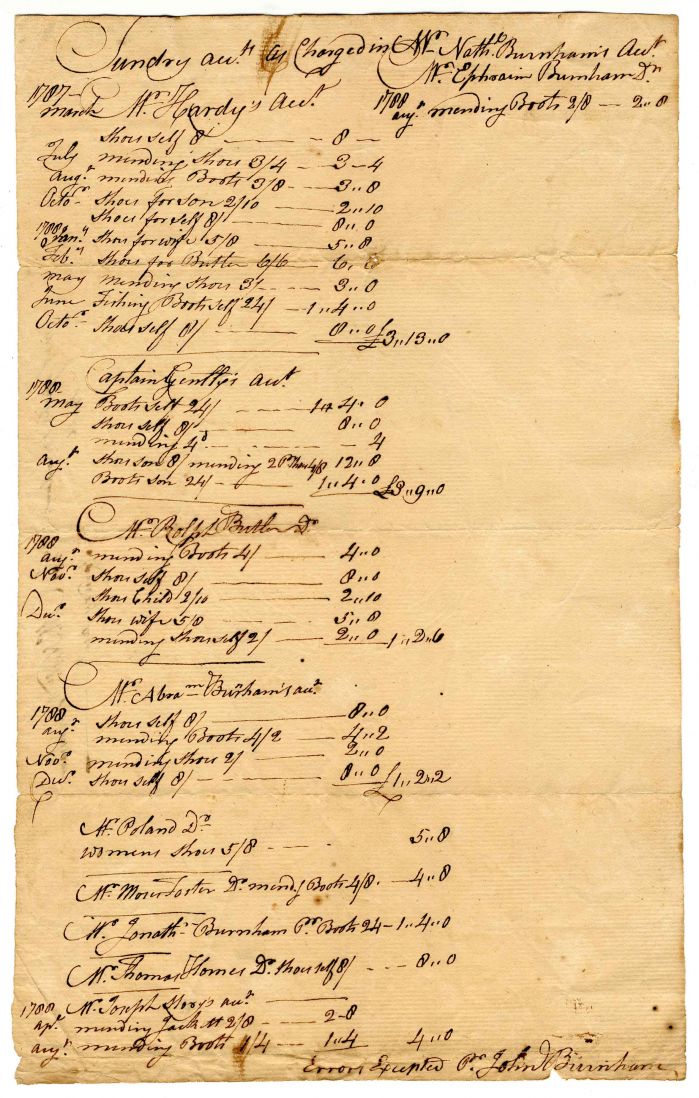 Sundry accts as Charged in Mr Nathl. Burnham's Acct
Mr Ephraim Burnham Dr
1788 augt mending Boots 2/8 — 2..8
1787
march Mr Hardy's Acct
Shoes self 8/ — 8 —
July mending shoes 3/4 — 3—4
Augt mending Boots 3/8 — 3..8
Octor shoes for son 2/10 — 2..10
Shoes for self 8/ — 8..0
1788 Jany Shoes for wife 5/8 — 5..8
Feby shoes for Butler 6/6 — 6..6
may mending shoes 3/ — 3..0
June Fishing Boots self 24/ — 1..4..0
Octor Shoes self 8/ — 8..0 £3..13..0
Captain acct
1788
may Boots self 24/ — 1..4..0
Shoes self 8/ — 8..0
mending 4d — 4
augt Shoes son 8/ mending 2 Pr Shoes 4/8 12..8
Boots son 24/ — 1..4..0 £3..9..0
Mr Rolph Butler Dr
1788
augt mending Boots 4/ — 4..0
Novr Shoes self 8/ — 8..0
Shoes Child 2/10 — 2..10
Decr Shoes wife 5/8 — 5..8
mending shoes self 2/ — 2..0 1..2..6
Mr Abram Burnham's acct
1788
augt Shoes self 8/ — 8..0
mending Boots 4/2 — 4..2
Novr mending shoes 2/ — 2..0
Decr Shoes self 8/ — 8..0 £1..2..2
Mr Poland Dr
womens Shoes 5/8 — 5..8
Mr Moses Foster Dr mendg Boots 4/8 — 4..8
Mr Jonath. Burnham Pr Boots 24 — 1..4..0
Mr Thomas Homes Dr Shoes self 8/ — 8..0
1788 Mr Joseph Story's acct
apr. mending Jack at 2/8 — 2-8
augt mending Boots 1/4 — 1..4 4..0
Errors Excepted Pr John Burnham